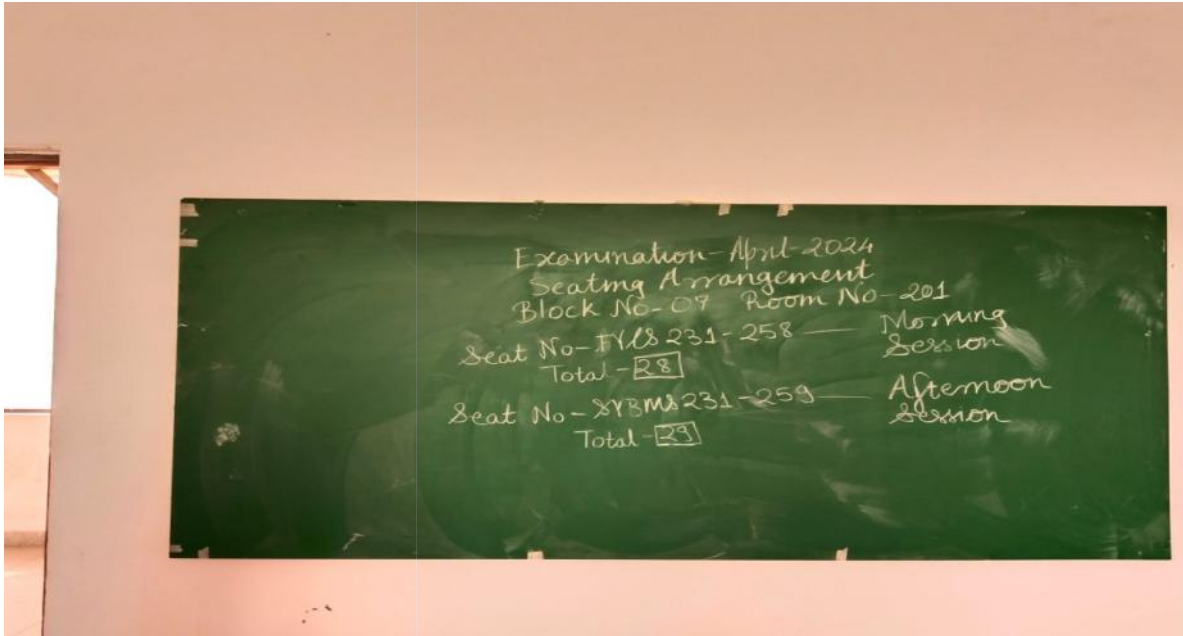 Examination-April-2024
Seating Arrangement
Block No-07 Room No-201
Seat No-FYCS231-258 — Morning Session
Total-28
Seat No-SYBMS231-259 — Afternoon Session
Total-29